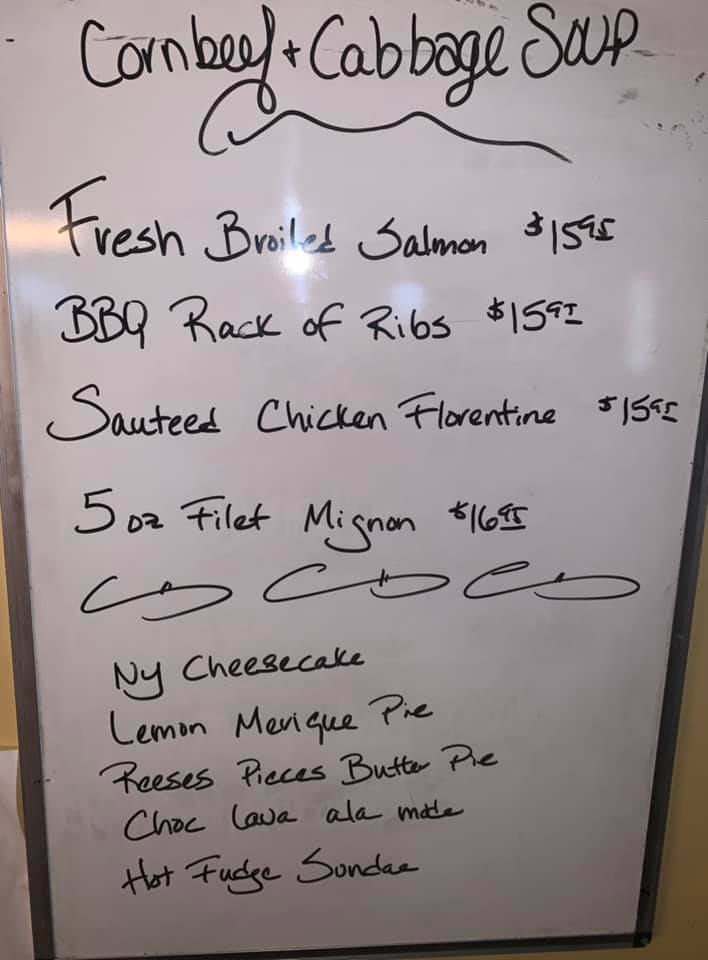 Cornbeef + Cabbage SOUP
Fresh Broiled Salmon $15.95
BBQ Rack of Ribs $15.95
Sauteed Chicken Florentine $15.95
5 oz Filet Mignon $16.95
NY Cheesecake
Lemon Merique Pie
Reeses Pieces Butter Pie
Choc Lava ala mode
Hot Fudge Sundae